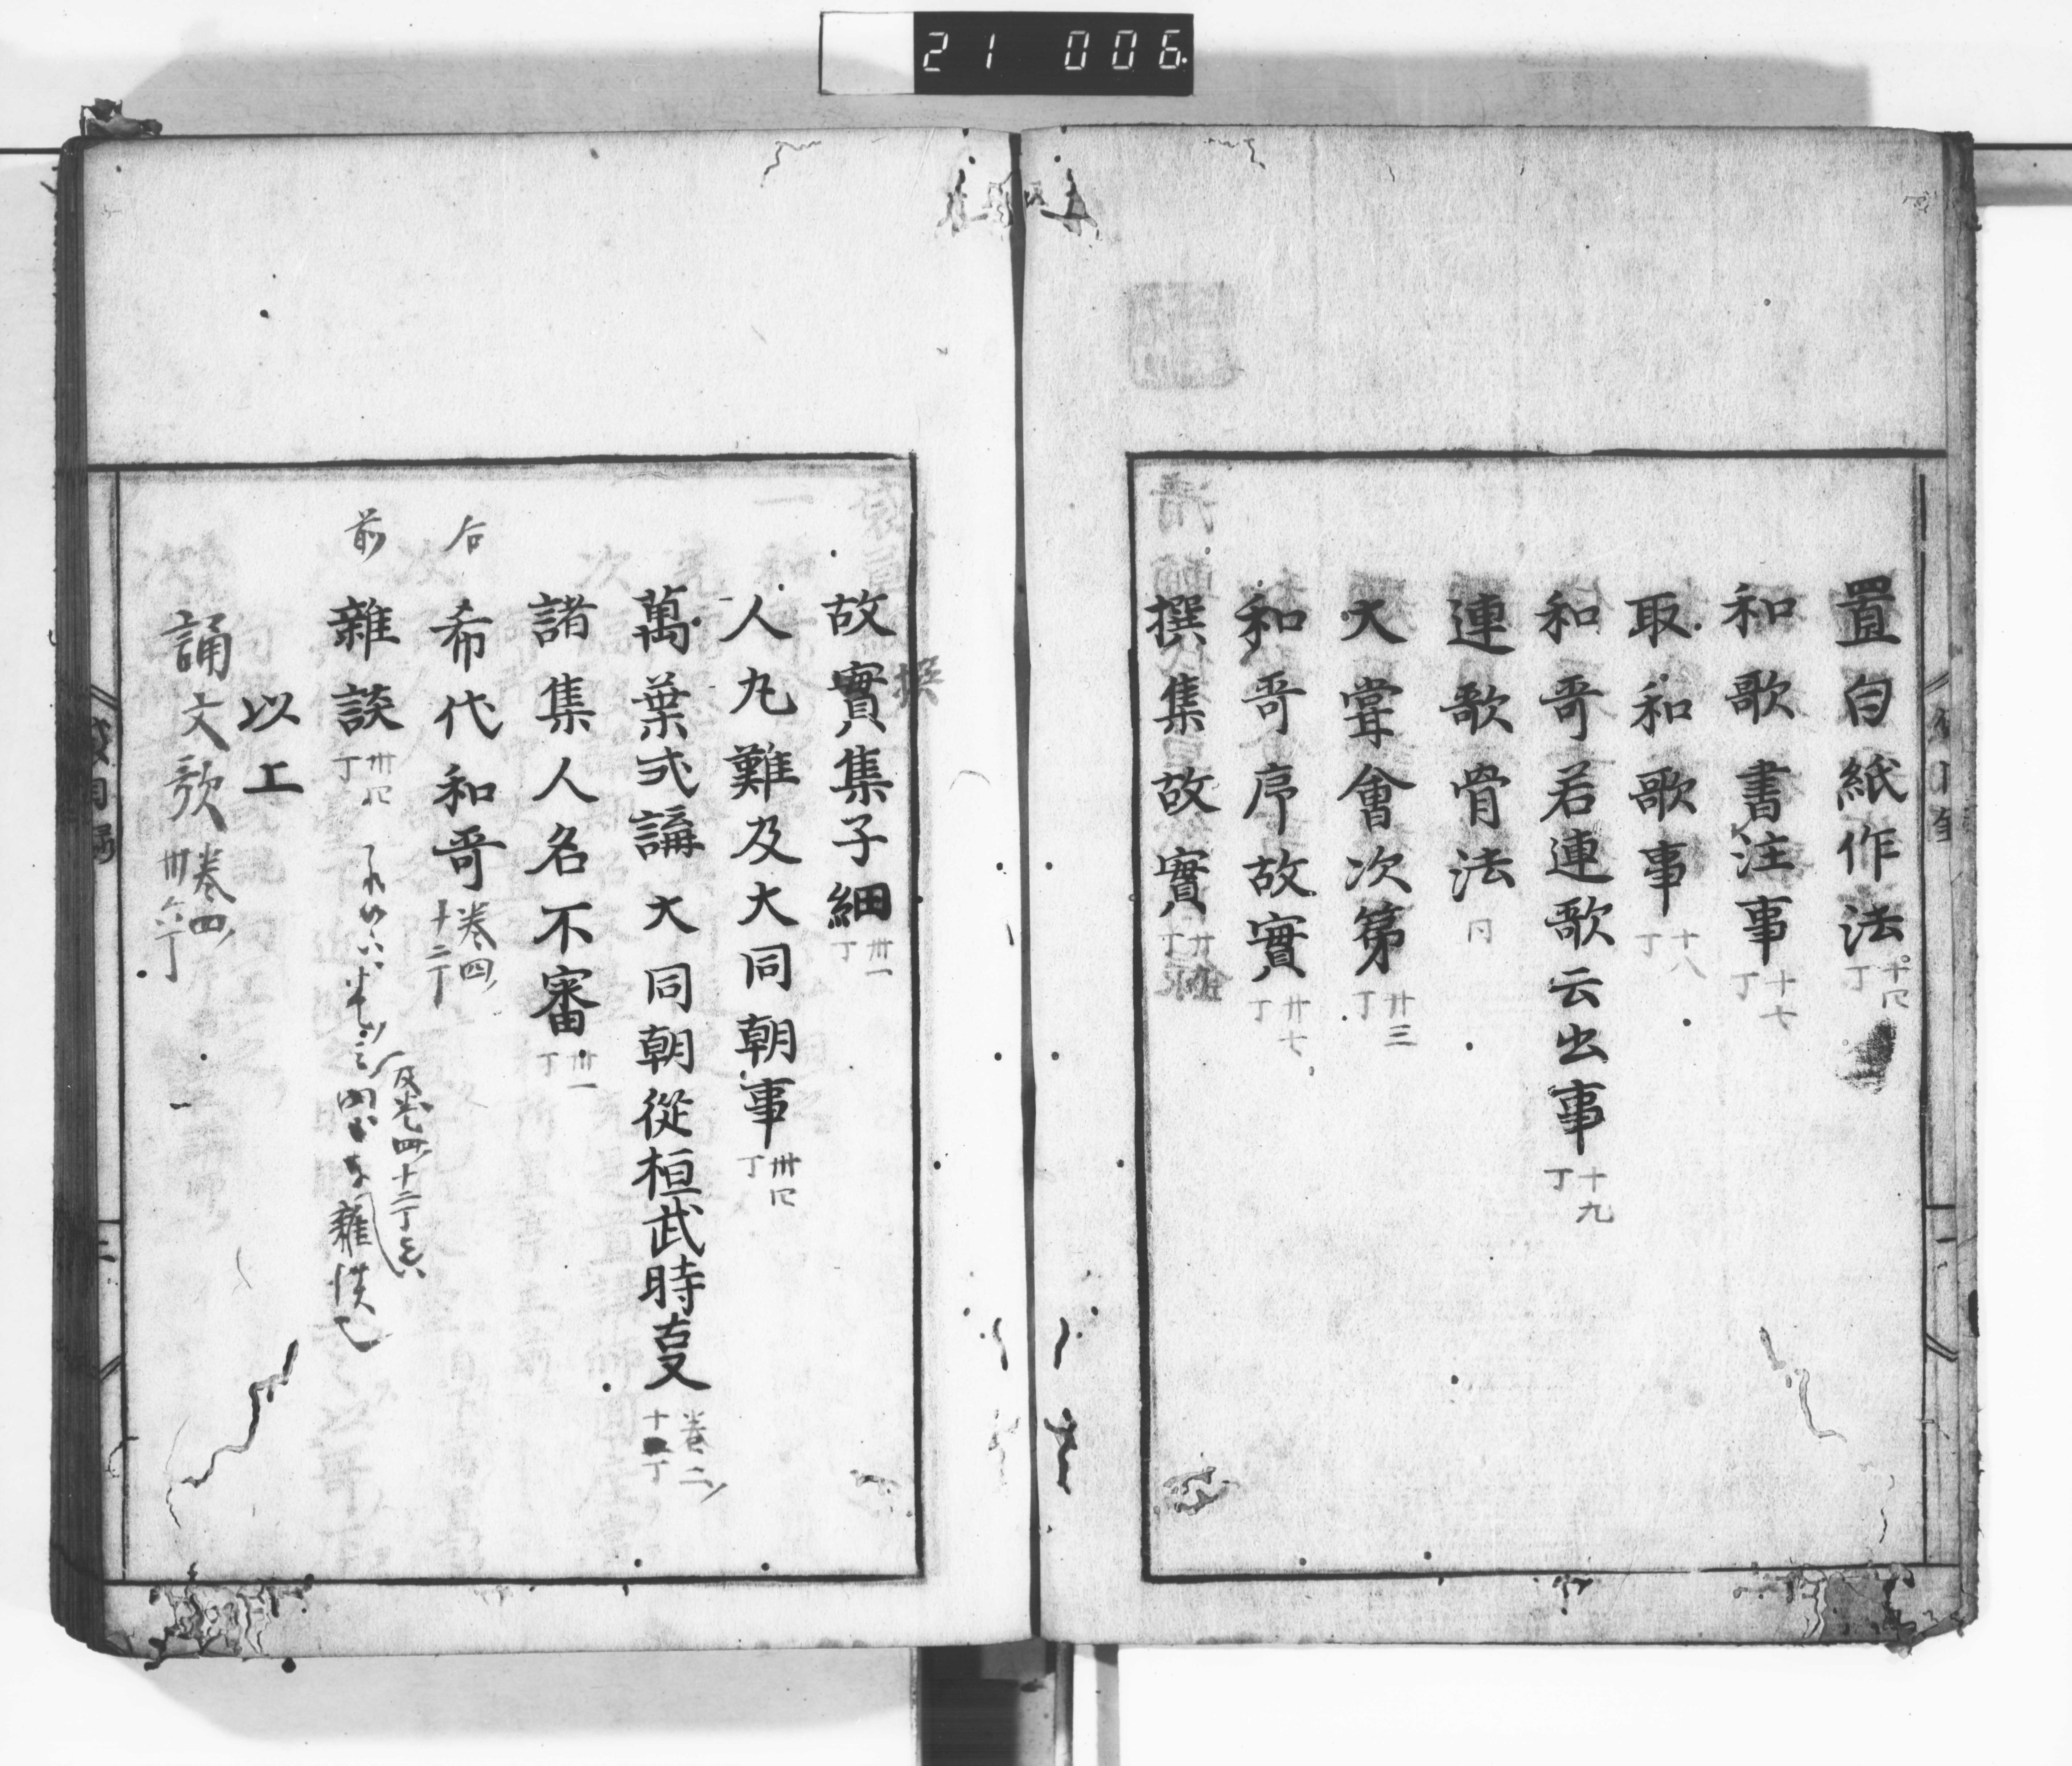 21 006
置白紙作法 十四丁
和歌書注事 十七丁
取和歌事 十八丁
和哥若連歌云出事 十九丁
連歌骨法 同
大甞會次第 廿三丁
和哥序故實 廿七丁
撰集故實
撰
故實集子細 卅一丁
人丸難及大同朝事 卅四丁
萬葉弐講大同朝從桓武時㕝 卷二 丁
諸集人名不審 卅一丁
后 希代和哥 卷四 十二丁
前 雜談 卅四丁
及卷四十二丁
以上
誦文歌 卷四 卅六丁